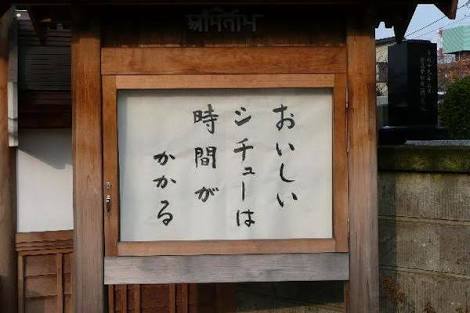 おいしい
シチューは
時間が
かかる